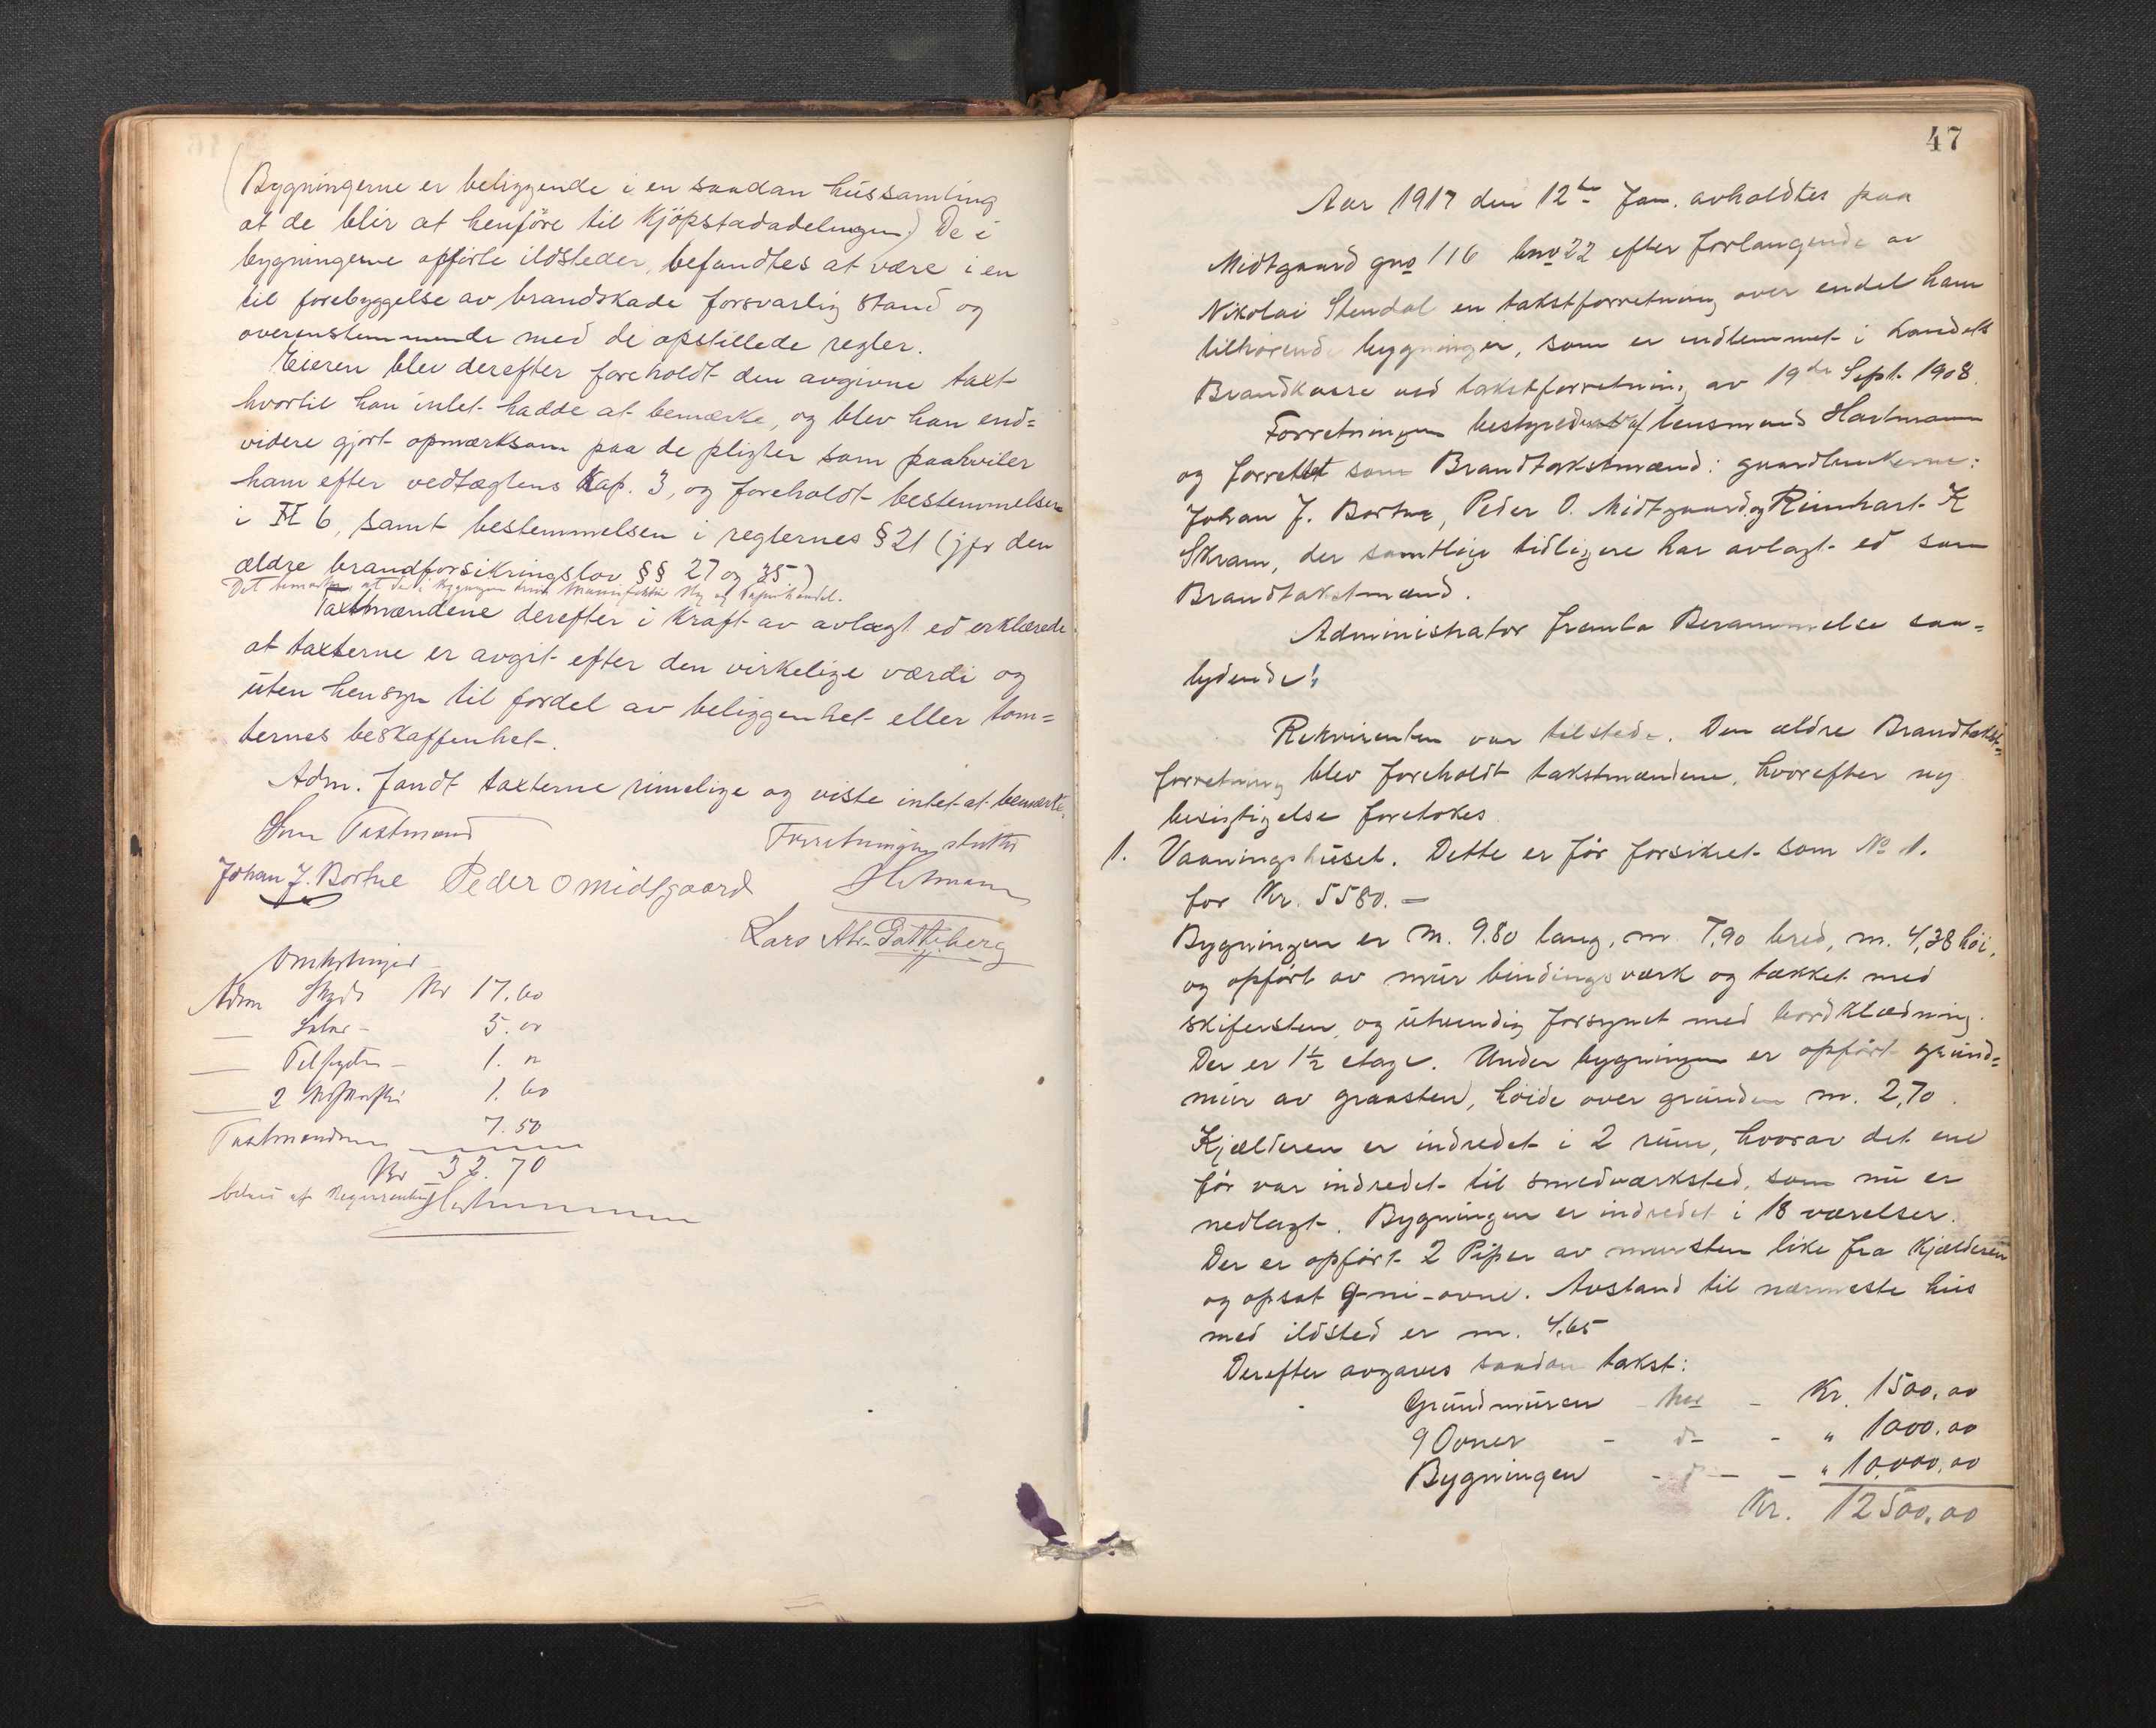 (Bygningerne er beliggende i en saadan hussamling
at de blir at henføre til Kjøpstadadelingen) De i
bygningerne opførte ildsteder, befandtes at være i en
til forebyggelse av brandskade forsvarlig stand og
overenstemmende med de opstillede regler.
Eieren blev derefter foreholdt den avgivne taxt
hvortil han intet hadde at bemærke, og blev han end=
videre gjort opmærksom paa de pligter som paahviler
ham efter vedtægtens Kap. 3, og foreholdt bestemmelsen
i § 6, samt bestemmelsen i reglernes § 21 (jfr den
ældre brandforsikringslov §§ 27 og 35.)
Det bemærkes at der i bygningen drives Manufaktur og Papirhandel.
Taxtmændene derefter i Kraft av avlagt ed erklærede
at taxterne er avgit efter den virkelige værdi og
uten hensyn til fordel av beliggenhet eller tom=
ternes beskaffenhet.
Adm. fandt taxterne rimelige og viste intet at bemærke.
Som Taxtmænd Forretningen sluttet
Johan J. Bortne Peder O Midtgaard Hartmann
Lars Abr. Gotteberg
Omkostninger
Adm Skyds Kr 17.60
— Salær - 5.00
— 1. "
— 2 1.60
Taxtmændene 7.50
Kr 32.70
betalt af Reqvirenten Hartmann
47
Aar 1917 den 12te Jan. avholdtes paa
Midtgaard gno 116 bno 22 efter forlangende av
Nikolai Stendal en takstforretning over endel ham
tilhørende bygninger, som er indlemmet i Landets
Brandkasse ved takstforretning av 19de Sept. 1908.
Forretningen bestyredes af lensmand Hartmann
og forrettet som Brandtakstmænd: gaardbrukerne:
Johan J. Bortne, Peder O. Midtgaard og Reinhart K
Skram, der samtlige tidligere har avlagt ed som
Brandtakstmænd.
Administrator fremla Berammelse saa=
lydende:
Rekvirenten var tilstede. Den ældre Brandtakst=
forretning blev foreholdt takstmændene, hvorefter ny
besigtigelse foretokes
1. Vaaningshuset. Dette er før forsikret som No 1.
for Kr. 5580. —
Bygningen er M. 9.80 lang, m. 7,90 bred, m. 4,38 høi,
og opført av mur bindingsværk og tækket med
skifersten, og utvendig forsynet med bordklædning.
Der er 1½ etage. Under bygningen er opført grund=
mur av graasten, høide over grunden m. 2,70.
Kjælderen er indredet i 2 rum, hvorav det ene
før var indredet til smedværksted, som nu er
nedlagt. Bygningen er indredet i 18 værelser.
Der er opført 2 Piper av mursten like fra Kjælderen
og opsat 9-ni-ovne. Avstand til nærmeste hus
med ildsted er m. 4,65
Derefter avgaves saadan takst:
Grundmuren - Kr. 1500,00
9 Ovner - do - " 1000,00
Bygningen - do - " 10,000,00
Kr. 12500,00